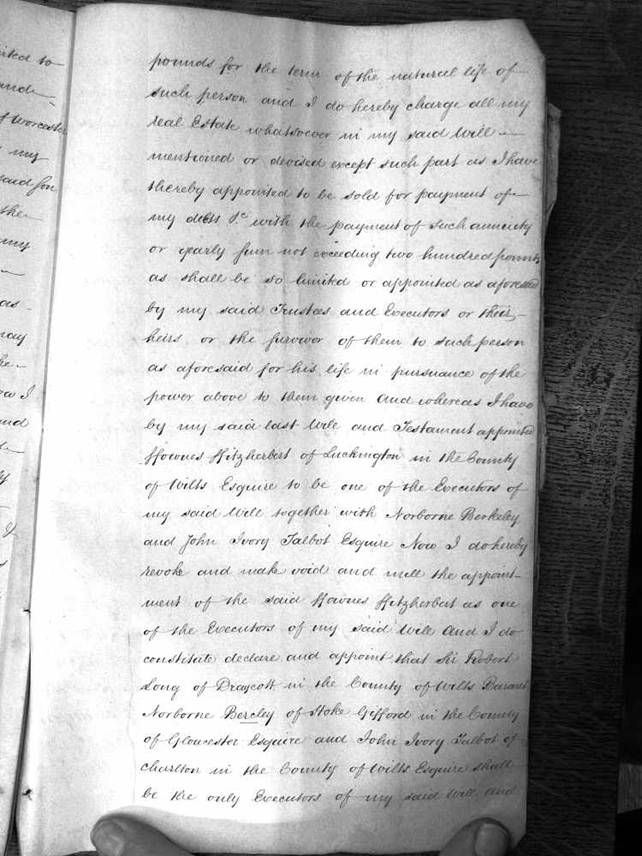 ited to
and
of Worcester
my
said son
the
my
as
may
he
I
and
I
pounds for the term of the natural life of
such person and I do hereby charge all my
real Estate whatsoever in my said Will
mentioned or devised except such part as I have
thereby appointed to be sold for payment of
my debts &c with the payment of such annuity
or yearly sum not exceeding two hundred pounds
as shall be so limited or appointed as aforesaid
by my said Trustees and Executors or their
heirs or the survivor of them to such person
as aforesaid for his life in pursuance of the
power above to them given And whereas I have
by my said last Will and Testament appointed
ffownes ffitzherbert of Luckington in the County
of Wilts Esquire to be one of the Executors of
my said Will together with Norborne Berkeley
and John Ivory Talbot Esquire Now I do hereby
revoke and make void and null the appoint-
ment of the said ffownes ffitzherbert as one
of the Executors of my said Will And I do
constitute declare and appoint that Sir Robert
Long of Draycott in the County of Wilts Baronet
Norborne Bercley of Stoke Gifford in the County
of Gloucester Esquire and John Ivory Talbot of
Charlton in the County of Wilts Esquire shall
be the only Executors of my said Will and